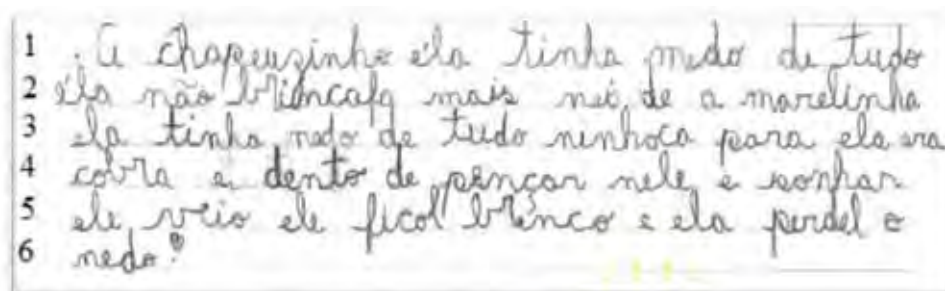 1 . A chapeuzinho éla tinha medo de tudo
2 éla não brimcafa mais nei de a marelinha
3 ela tinha nedo de tudo ninhoca para ela era
4 cobra e dento de pençar nele e sonhar
5 ele veio ele ficol brinco e ela perdel o
6 nedo!